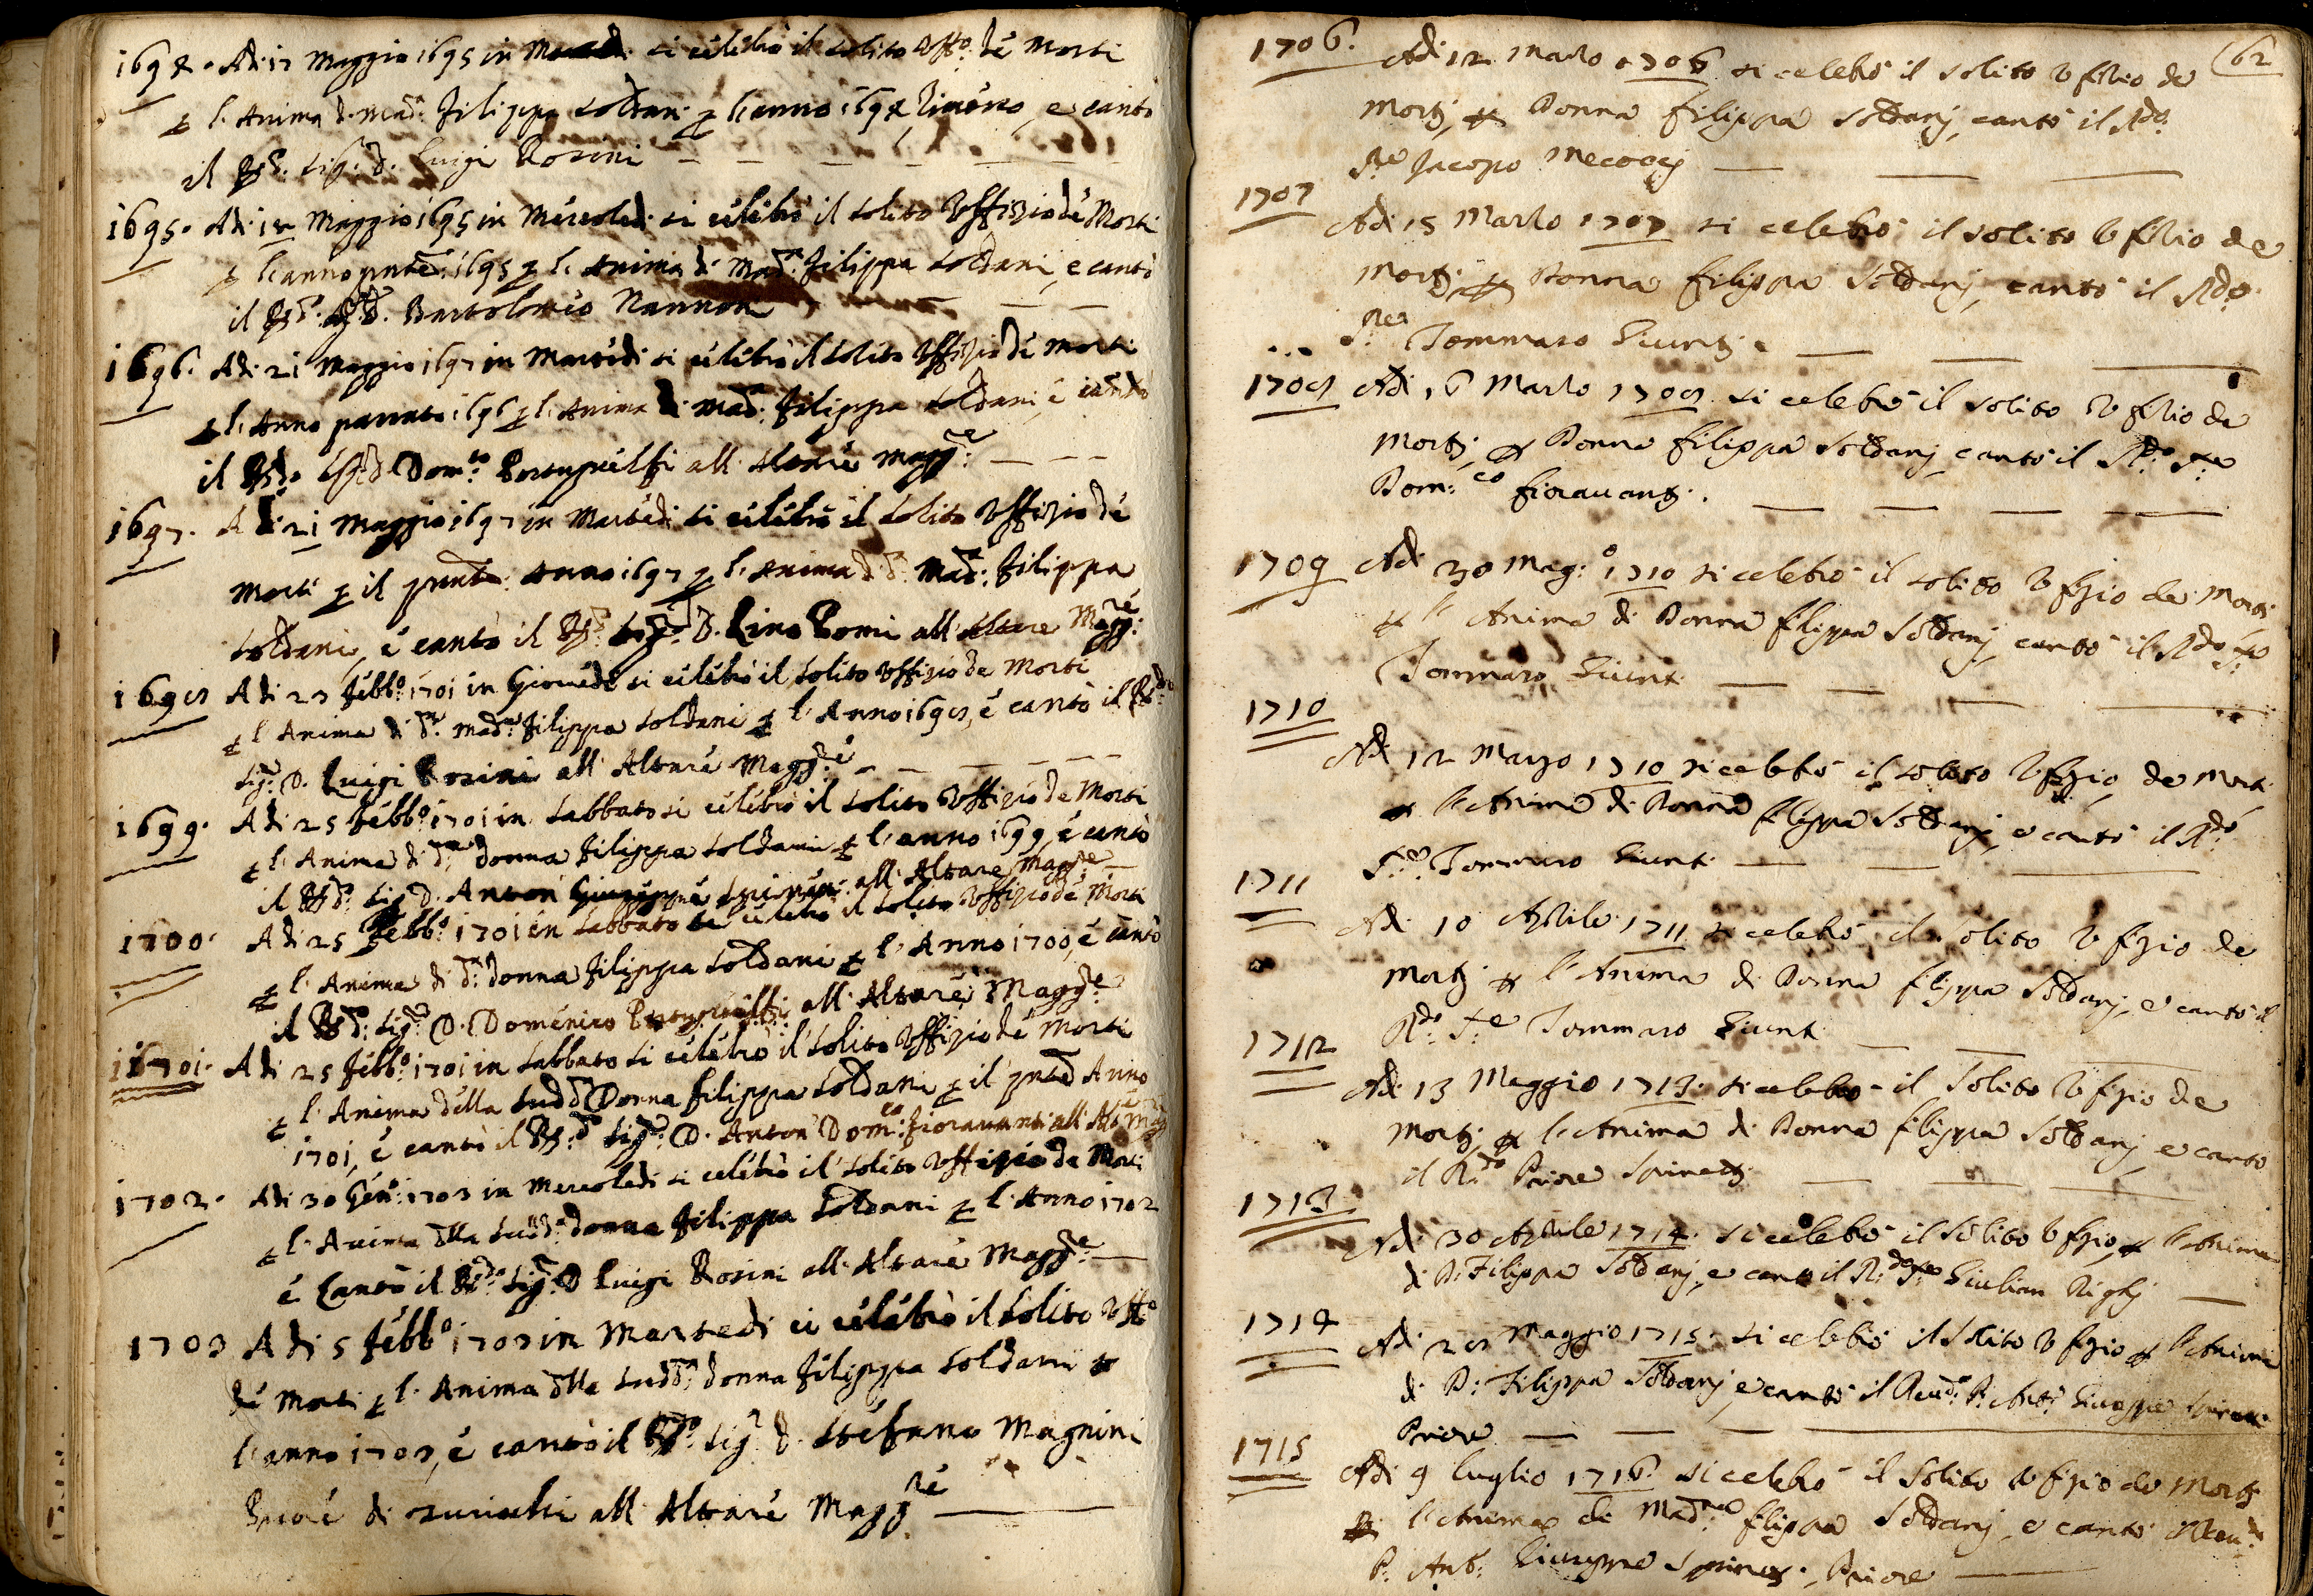 1694. Adi 17 Maggio 1695 in si celebrò il solito Uff.o de Morti
p l'Anima d. Mad.a Filippa Soldani p l'anno 1694, e cantò
il R.do Sig.r D. Luigi Rosini
1695. Adi 18 Maggio 1695 in Mercoledi si celebrò il solito Uffizio de Morti
p l'anno pnte 1695 p l'Anima di Mad.a Filippa Soldani, e cantò
il R.do Sig.r D. Bartolomeo Nannoni
1696. Adi 21 Maggio 1697 in Martedi si celebrò il solito Uffizio de Morti
p l'Anno passato 1696 p l'Anima di Mad.a Filippa Soldani, e cantò
il R.do Sig.r D. Dom.co all'Altare Magg.re
1697. Adi 21 Maggio 1697 in Martedi si celebrò il solito Uffizio de
Morti p il pnte Anno 1697 p l'Anima di d.a Mad.a Filippa
Soldani, e cantò il R.do Sig.r D. Lino Pomi all'Altare Magg.re
1698 Adi 23 Febb.o 1701 in Giovedi si celebrò il solito Uffizio de Morti
p l'Anima di d.a Mad.a Filippa Soldani p l'Anno 1698, e cantò il R.do
Sig.r D. Luigi Rosini all'Altare Magg.re
1699. Adi 25 Febb.o 1701 in Sabbato si celebrò il solito Uffizio de Morti
p l'Anima di d.a donna Filippa Soldani p l'anno 1699, e cantò
il R.do Sig.r D. Anton Giuseppe Spinetti all'Altare Magg.re
1700. Adi 25 Febb.o 1701 in Sabbato si celebrò il solito Uffizio de Morti
p l'Anima di d.a donna Filippa Soldani p l'Anno 1700, e cantò
il R.do Sig.r D. Domenico all'Altare Magg.re
1701. Adi 25 Febb.o 1701 in Sabbato si celebrò il solito Uffizio de Morti
p l'Anima della Sudd.a Donna Filippa Soldani p il pnte Anno
1701, e cantò il R.do Sig.r D. Anton Dom.co Fioravanti all'Alt.e Mag
1702. Adi 30 Gen.o 1703 in Mercoledi si celebrò il solito Uffizio de Morti
p l'Anima dlla Sud.a donna Filippa Soldani p l'Anno 1702
e Cantò il R.do Sig.r D Luigi Rosini all'Altare Magg.re
1703 Adi 5 Febb.o 1703 in Martedi si celebrò il solito Uff.o
de Morti p l'Anima dlla Sudd.a donna Filippa Soldani p
l'anno 1703, e cantò il R.do Sig.r D. Stefano Magnini
Priore di all'Altare Magg.re
62
1706. Adi 12 Marzo 1706 si celebrò il solito Ufizio de
Morti, p Donna Filippa Soldanj, cantò il R.do
P.re Jacopo Mecoccj
1707 Adi 15 Marzo 1707 si celebrò il solito Ufizio de
Morti, p Donna Filippa Soldanj, cantò il R.do
P.re Tommaso Giuntj
1708 Adi 6 Marzo 1708 si celebrò il solito Ufizio de
Morti, p Donna Filippa Soldanj, cantò il R.do P.re
Dom.co Fioravanti.
1709 Adi 30 Mag.o 1710 si celebrò il solito Ufizio de Morti
p l'Anima di Donna Filippa Soldanj, cantò il R.do P.re
Tommaso Giunti
1710 Adi 12 Marzo 1710 si celebrò il solito Ufizio de Morti
p l'Anima di Donna Filippa Soldanj, e cantò il R.do
P.re Tommaso Giunti
1711 Adi 10 Aprile 1711 si celebrò il solito Ufizio de
Morti p l'Anima di Donna Filippa Soldanj, e cantò il
R.do P.re Tommaso Giunti
1712 Adi 13 Maggio 1713. si celebrò il Solito Ufizio de
Morti, p l'Anima di Donna Filippa Soldanj, e cantò
il R.do Priore Spinetti
1713 Adi 30 Aprile 1714. si celebrò il solito Ufizio, p l'Anima
di D: Filippa Soldanj, e cantò il R.do P.re Giulian Righj
1714 Adi 28 Maggio 1715. si celebrò il solito Ufizio p l'Anima
di D: Filippa Soldanj, e cantò il Reu.do P. Ant.o Giuseppe Spinetti
Priore
1715 Adi 9 luglio 1716. si celebrò il Solito Ufizio de Morti
p l'Anima di Mad.na Filippa Soldanj, e cantò il Reu.do
P. Ant: Giuseppe Spinetti, Priore